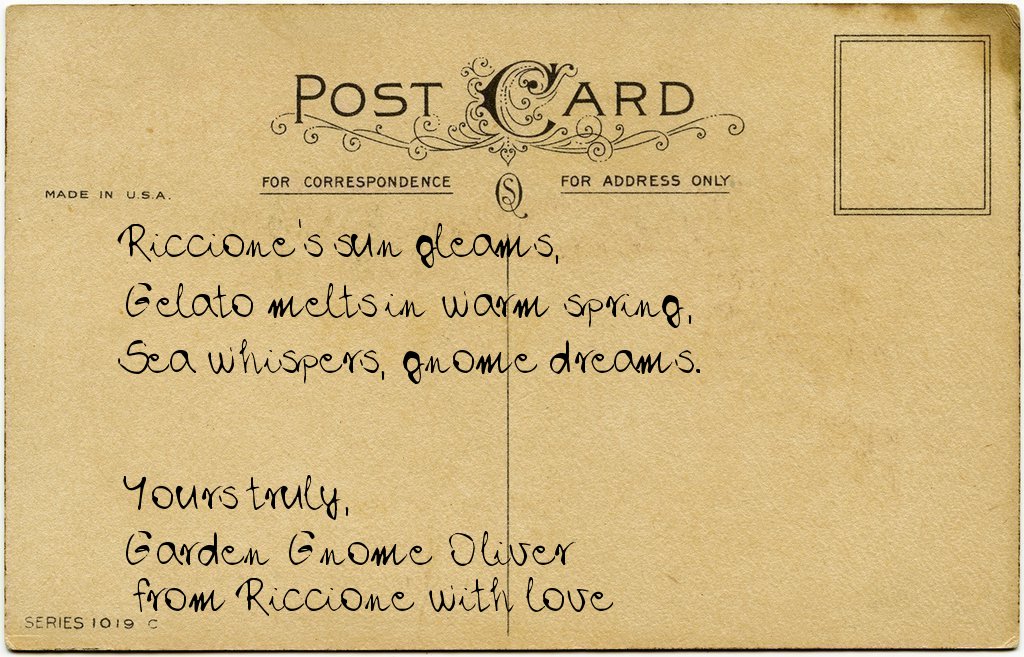 POST CARD
FOR CORRESPONDENCE
FOR ADDRESS ONLY
MADE IN U.S.A.
Riccione's sun gleams,
Gelato melts in warm spring,
Sea whispers, gnome dreams.
Yours truly,
Garden Gnome Oliver
from Riccione with love
SERIES 1019 C